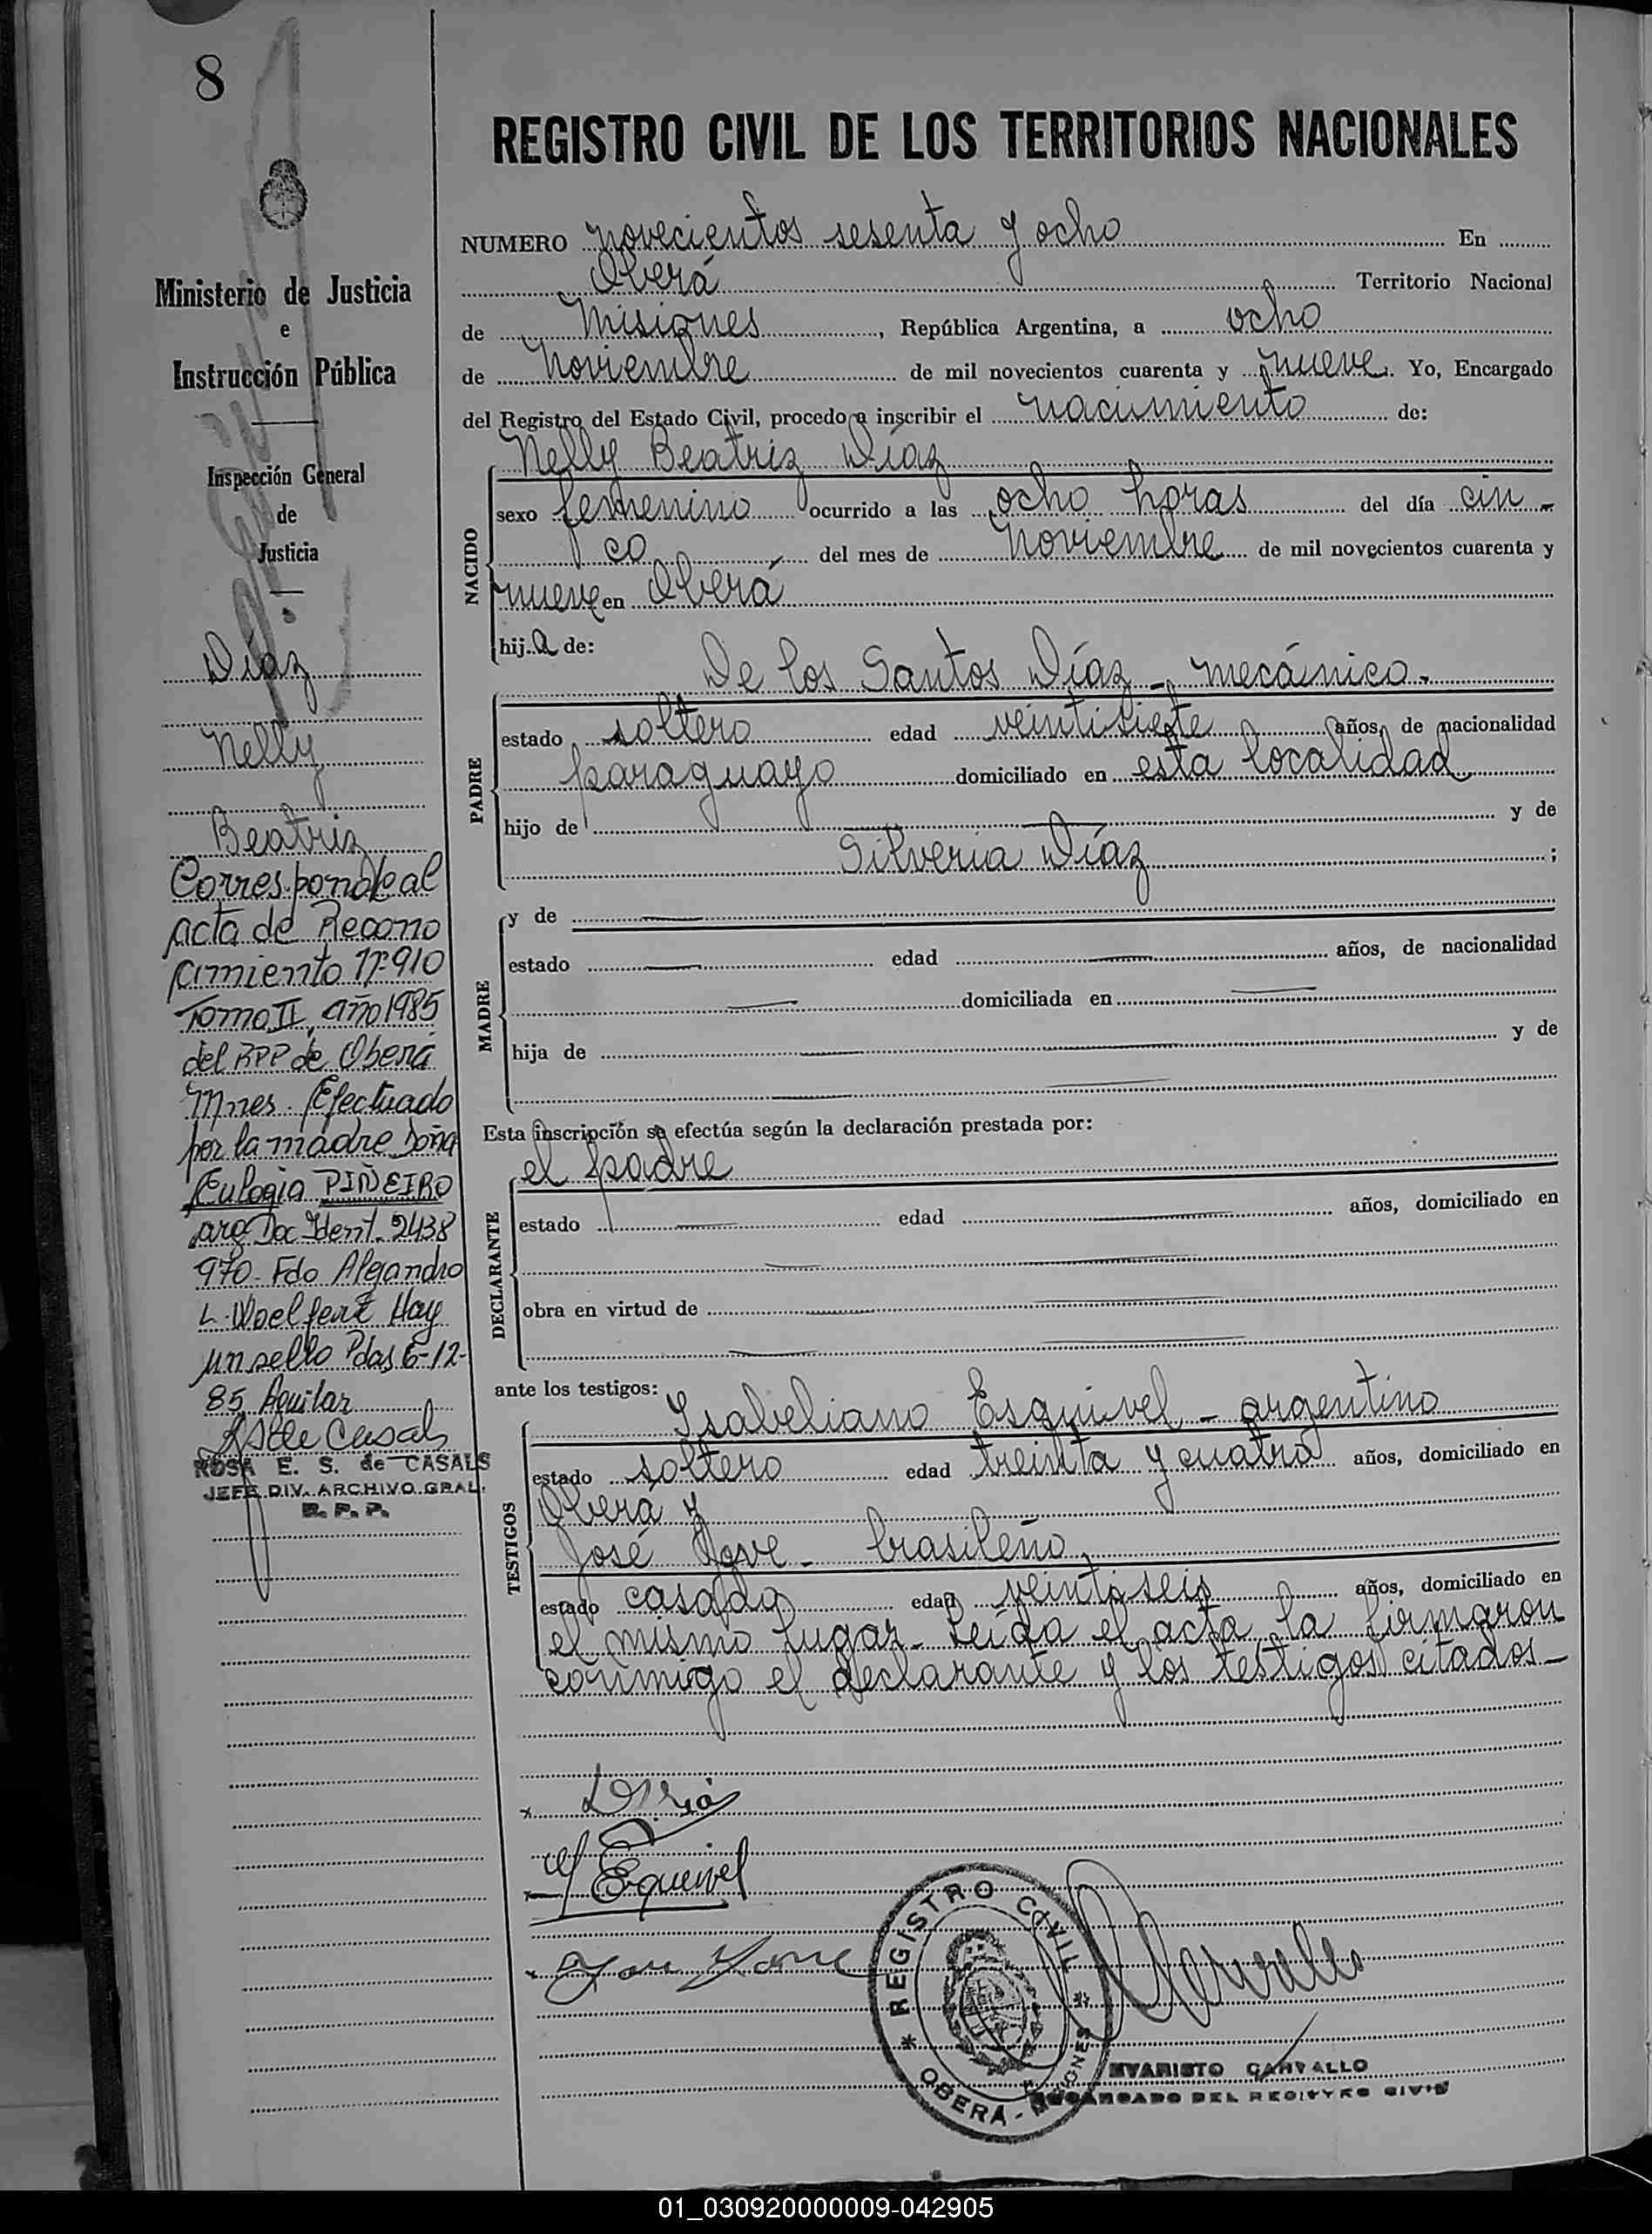 8
REGISTRO CIVIL DE LOS TERRITORIOS NACIONALES
NUMERO novecientos sesenta y ocho En
Oberá Territorio Nacional
de Misiones, República Argentina, a ocho
de Noviembre de mil novecientos cuarenta y nueve. Yo, Encargado
del Registro del Estado Civil, procedo a inscribir el nacimiento de:
Nelly Beatriz Díaz
NACIDO
sexo femenino ocurrido a las ocho horas del día cin-
co del mes de Noviembre de mil novecientos cuarenta y
nueve en Oberá
hija de:
De los Santos Díaz - mecánico.
PADRE
estado soltero edad veintisiete años, de nacionalidad
paraguayo domiciliado en esta localidad
hijo de — y de
Silveria Díaz;
MADRE
y de —
estado — edad — años, de nacionalidad
— domiciliada en —
hija de — y de
—
Esta inscripción se efectúa según la declaración prestada por:
el padre
DECLARANTE
estado — edad — años, domiciliado en
—
obra en virtud de —
—
ante los testigos:
Isabeliano Esquivel, - argentino
TESTIGOS
estado soltero edad treinta y cuatro años, domiciliado en
Oberá y
José - brasileño,
estado casado edad veintiseis años, domiciliado en
el mismo lugar - Leída el acta, la firmaron
conmigo el declarante y los testigos citados -
Equivel
REGISTRO CIVIL
OBERA - MISIONES
EVARISTO CARVALLO
ENCARGADO DEL REGISTRO CIVIL
Ministerio de Justicia
e
Instrucción Pública
Inspección General
de
Justicia
Díaz
Nelly
Beatriz
Corresponde al
acta de Recono
cimiento Nº 910
Tomo II, año 1985
del RPP de Oberá
Mnes. Efectuado
por la madre Doña
Eulogia PIÑEIRO
arg Doc Ident. 2438
970 - Fdo Alejandro
L. Hay
un sello Pdas 6-12-
85 Aguilar
de Casals
ROSA E. S. de CASALS
JEFE DIV. ARCHIVO GRAL.
R. P. P.
01_030920000009-042905